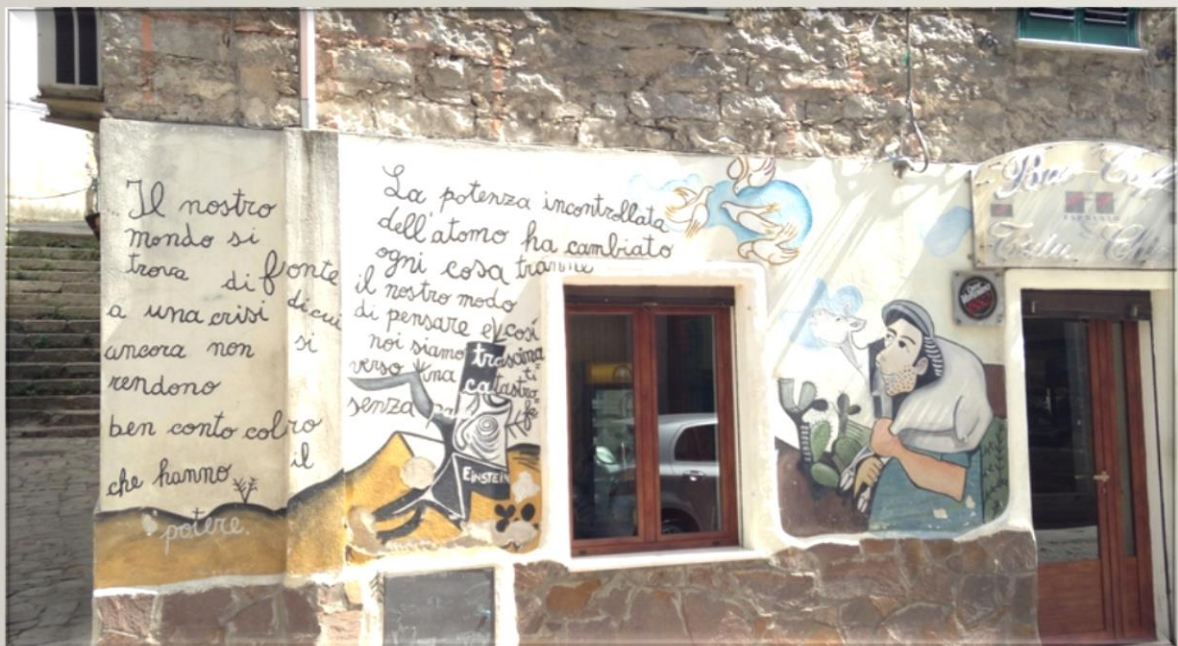 Il nostro
mondo si
trova di fronte
a una crisi di cui
ancora non si
rendono
ben conto coloro
che hanno il
potere.
La potenza incontrollata
dell'atomo ha cambiato
ogni cosa tranne
il nostro modo
di pensare e così
noi siamo trascina
ti
verso una catastro
fe
senza
EINSTEIN
Bar